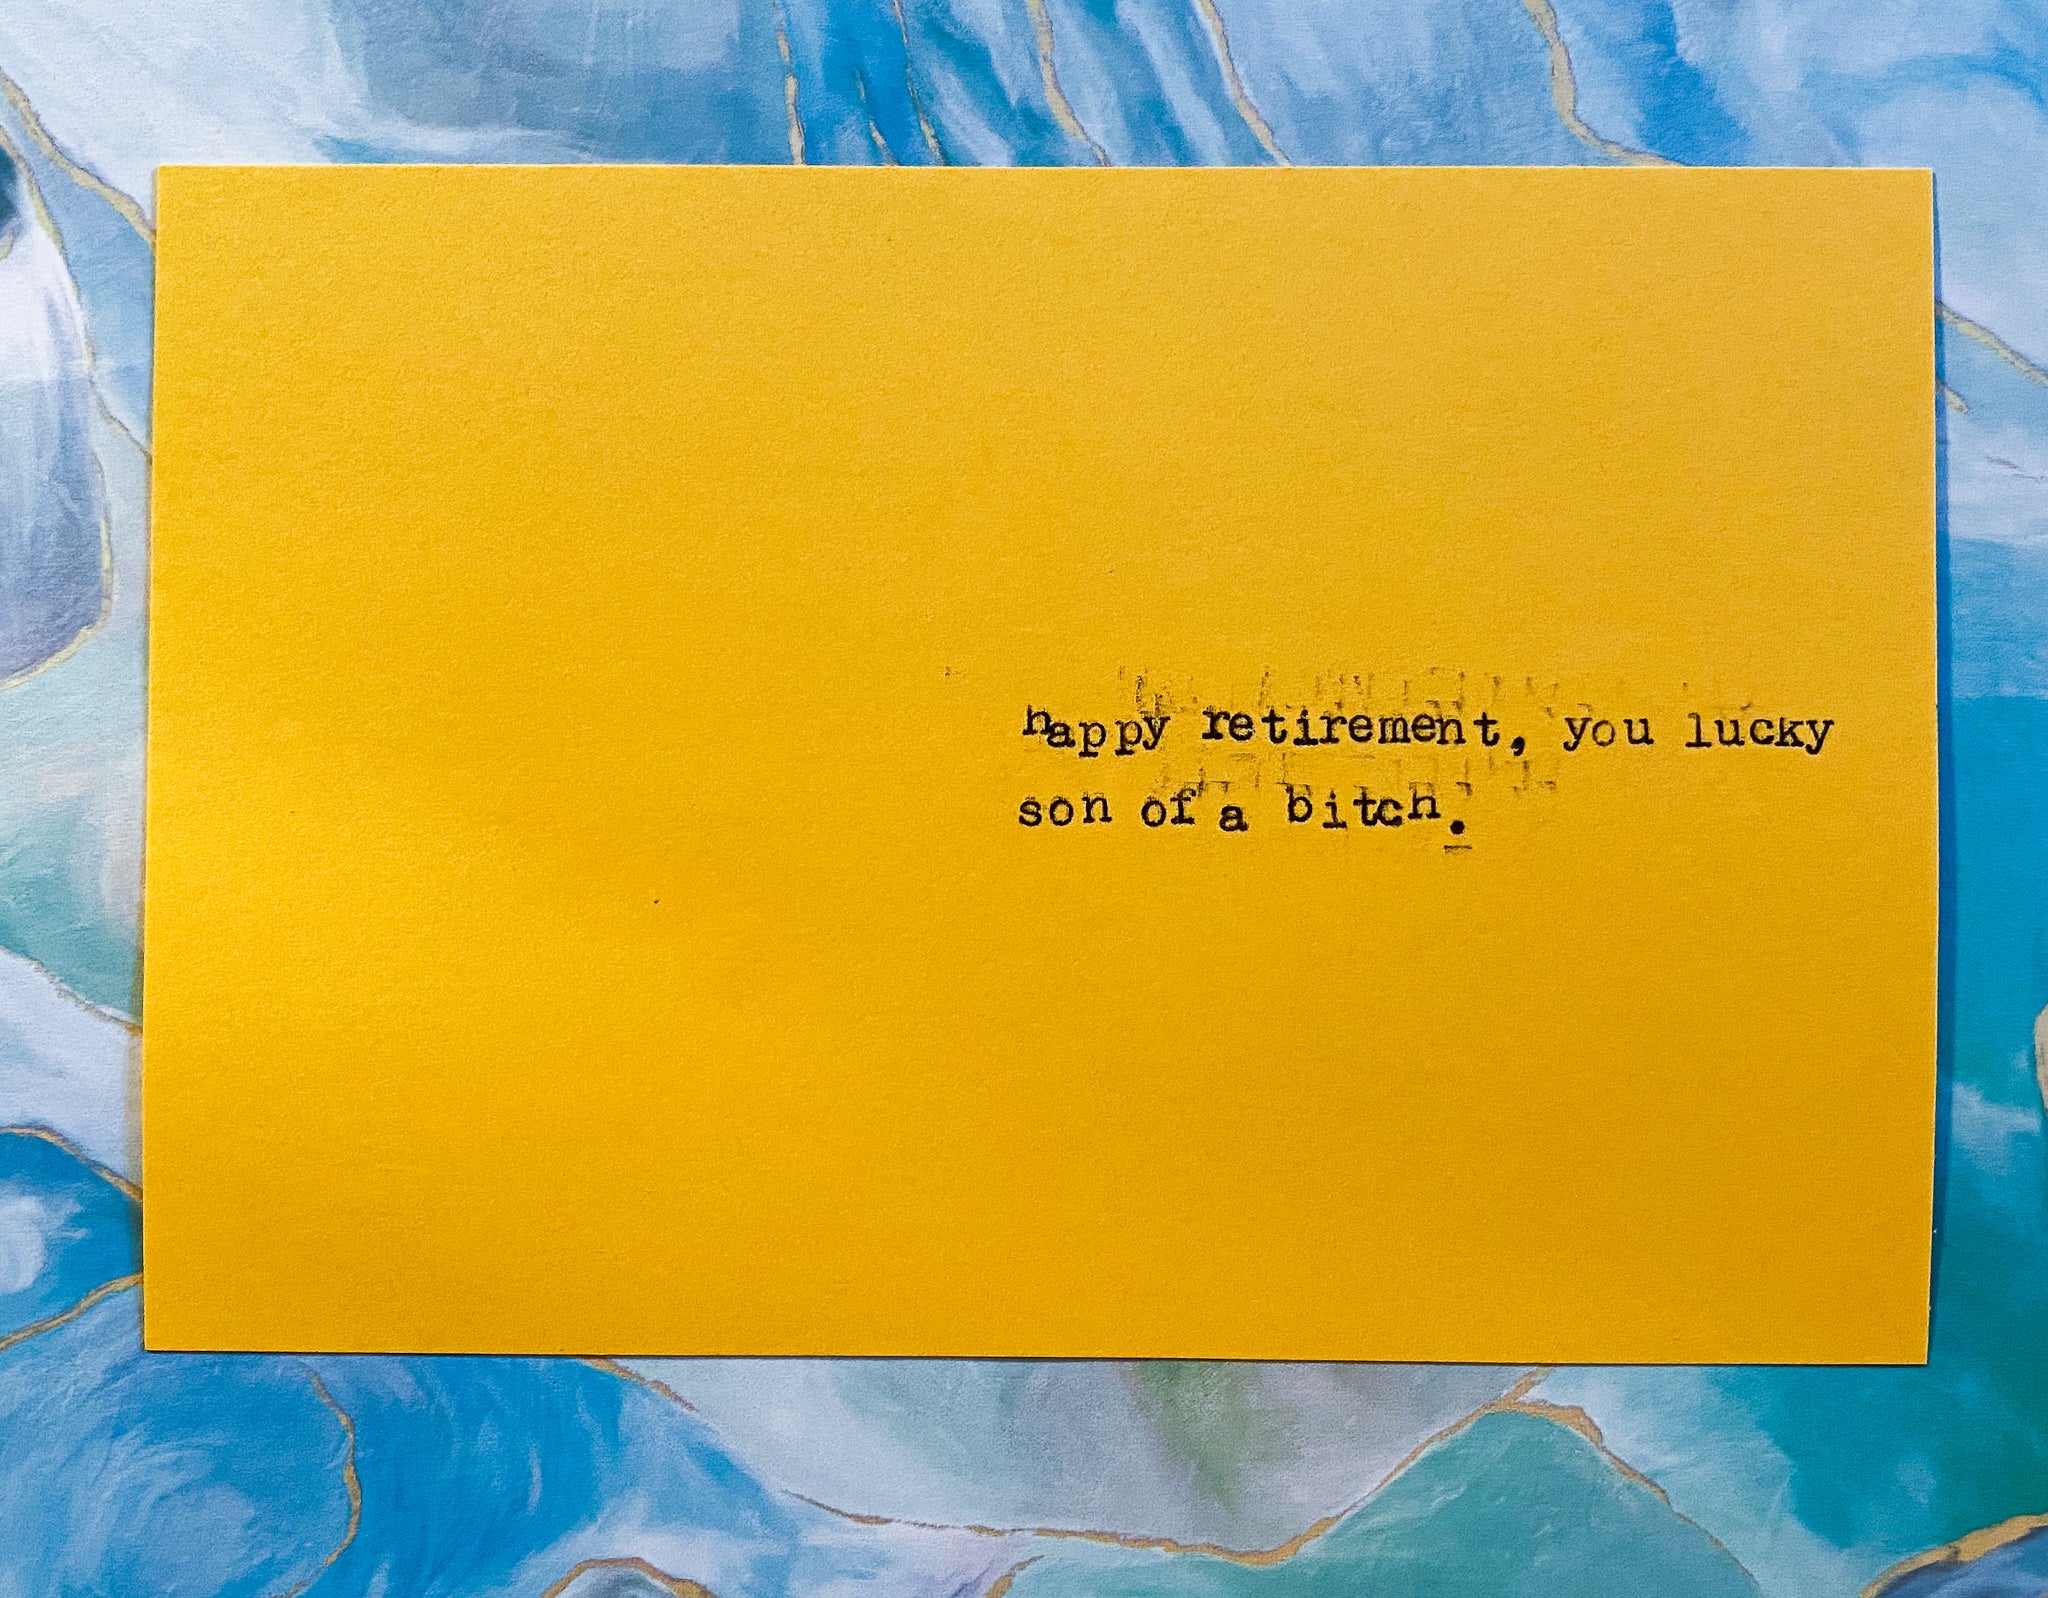 happy retirement, you lucky
son of a bitch.